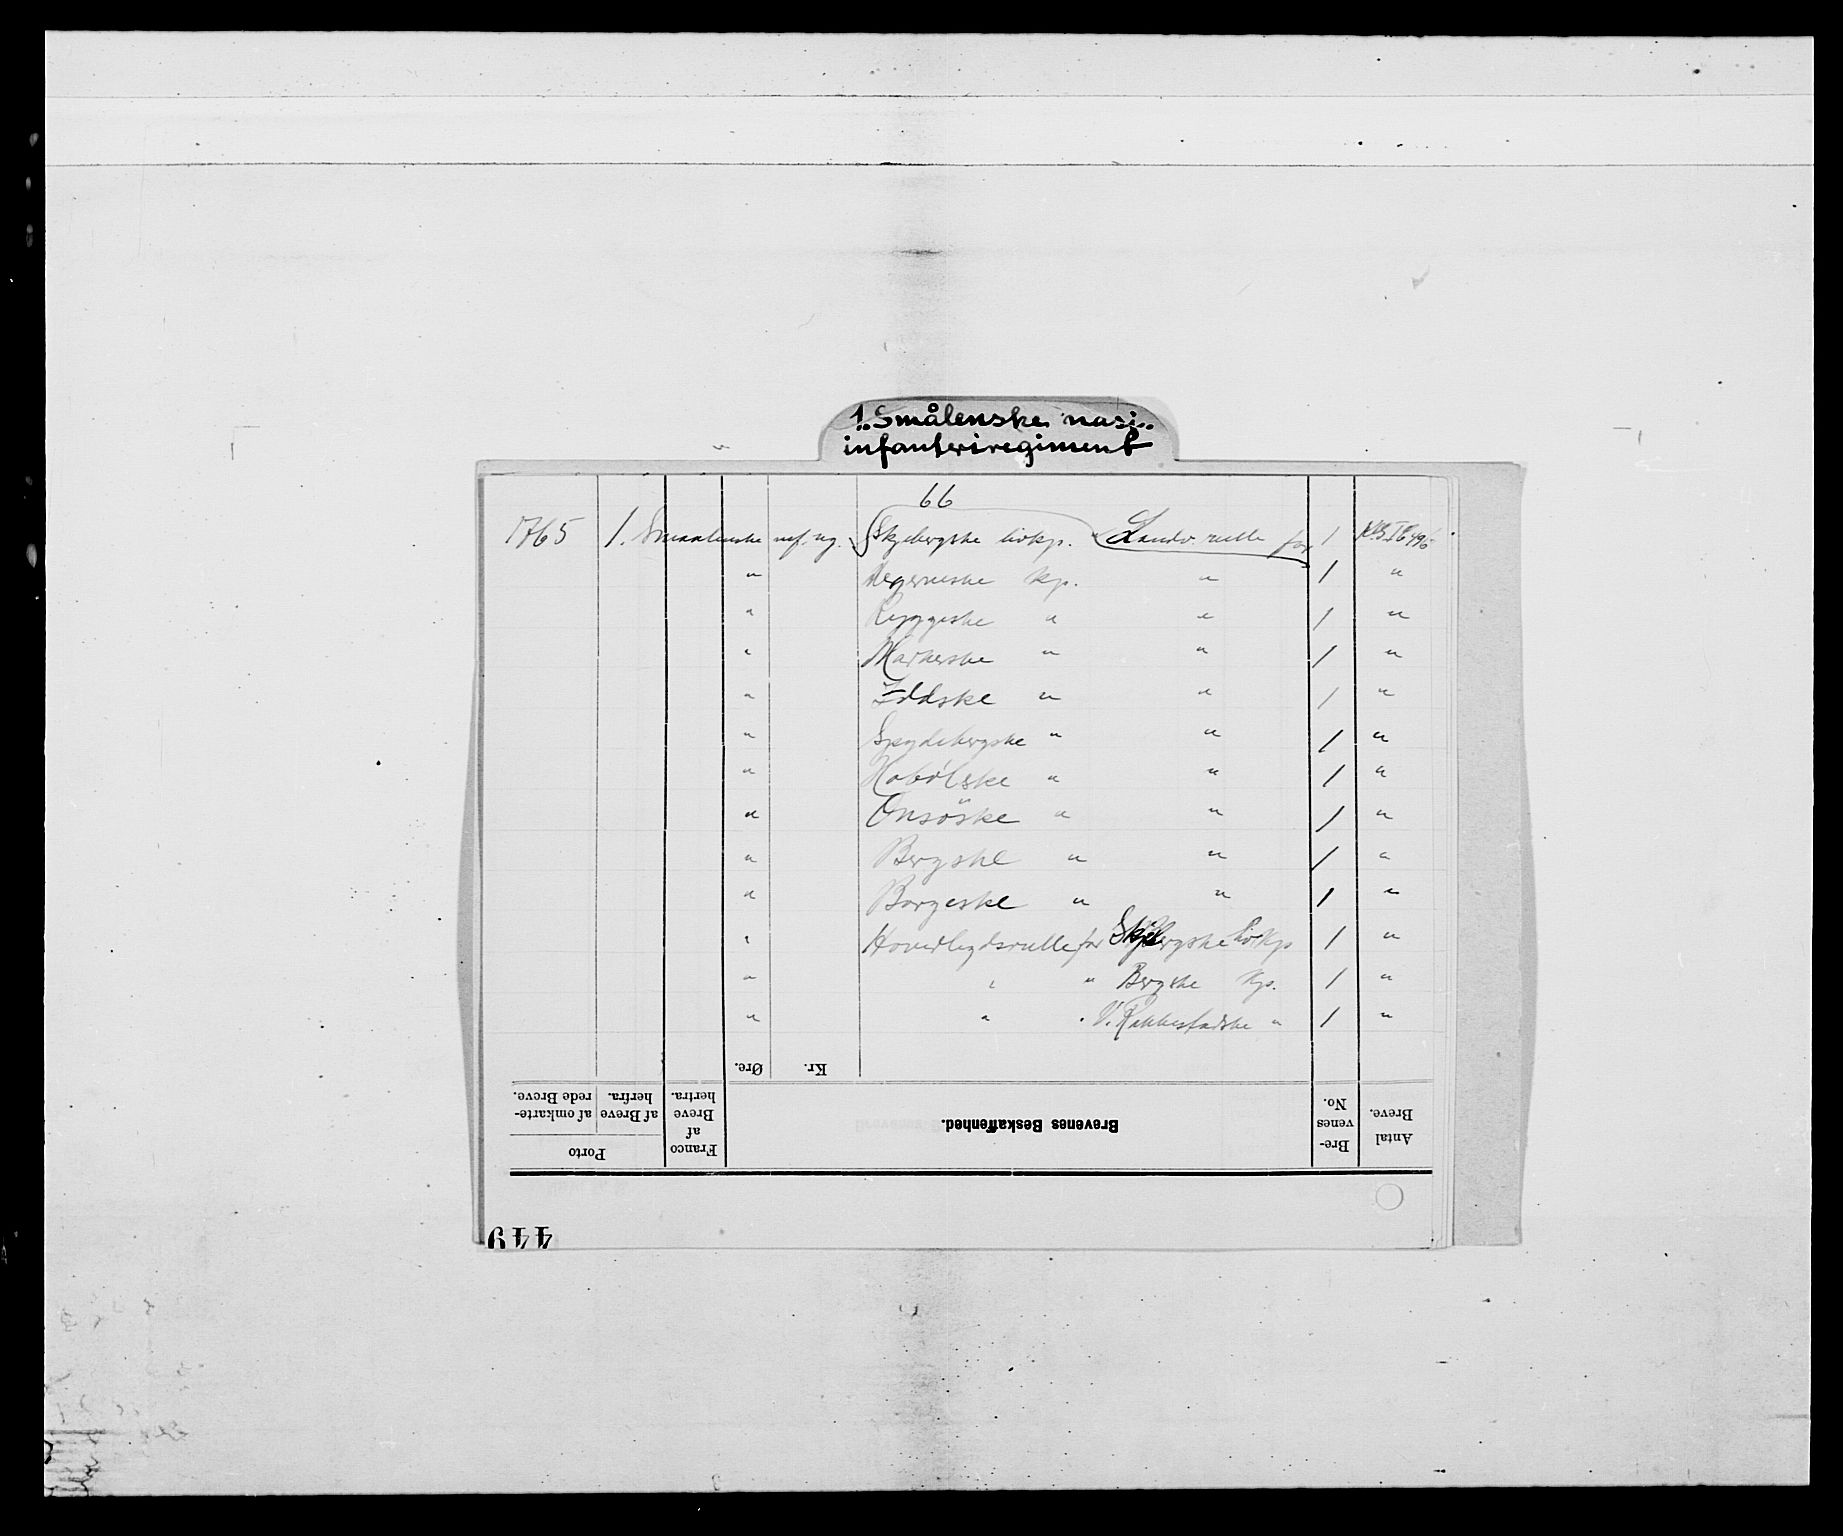 1. Smålenske nasj.
infanteriregiment
66
1765 1. Smaalenske inf. rg. Skjebergske livkp. Landv. rulle for 1
" Kp. " 1 "
" Ryggeske " " 1 "
" Markerske " " 1 "
" Iddske " " 1 "
" Spydebergske " " 1 "
" Hobölske " " 1 "
" Onsöske " " 1 "
" Bergske " " 1 "
" Borgeske " " 1 "
" Hovedlegdsrulle for Skjebergske livkp 1 "
" " " Bergske Kp. 1 "
" " " V. Rakkestadske " 1 "
Øre. Kr.
Porto
af omkarte-
rede Breve.
af Breve
herfra.
Franco
af
Breve
herfra.
Brevenes Beskaffenhed.
Bre-
venes
No.
Antal
Breve.
449